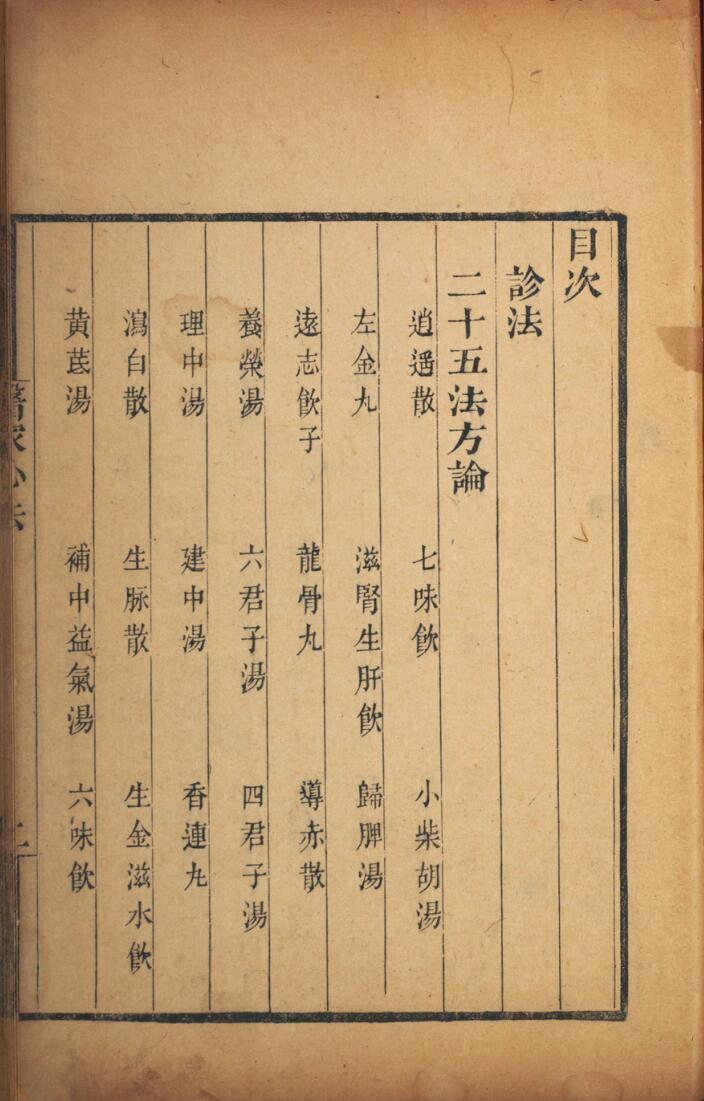 目次
診法
二十五法方論
逍遥散 七味飲 小柴胡湯
左金丸 滋腎生肝飲 歸脾湯
遠志飲子 龍骨丸 導赤散
養榮湯 六君子湯 四君子湯
理中湯 建中湯 香連丸
瀉白散 生脈散 生金滋水飲
黃芪湯 補中益氣湯 六味飲
醫家心法